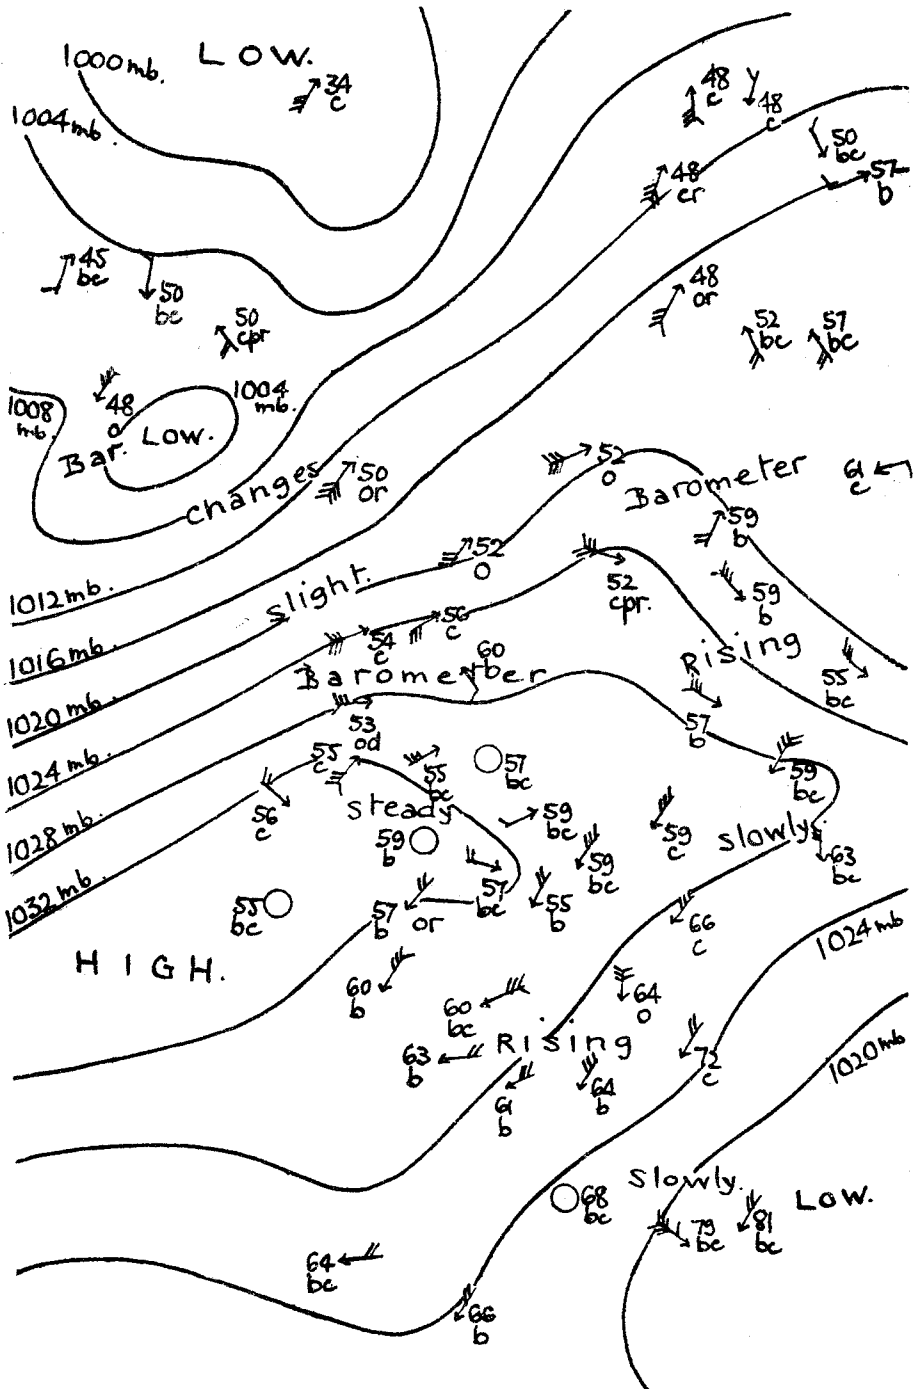 1000mb.
LOW.
34
c
48
c
48
c
1004mb.
50
bc
57
b
48
cr
45
bc
50
bc
48
or
50
cpr
52
bc
57
bc
1008
mb.
48
o
1004
mb.
Bar. Low.
changes
50
or
52
o
Barometer
61
c
59
b
52
o
1012mb.
slight.
52
cpr.
59
b
56
c
54
c
1016mb.
60
b
Rising
55
bc
Barometer
1020mb.
53
od
57
b
1024mb.
55
c
55
bc
57
bc
59
bc
steady
56
c
59
bc
59
c
slowly.
1028mb.
59
b
59
bc
63
bc
1032mb.
55
bc
57
b
or
57
bc
55
b
66
c
1024mb
HIGH.
60
b
60
bc
64
o
Rising
63
b
72
c
1020mb
61
b
64
b
slowly.
68
bc
LOW.
79
bc
81
bc
64
bc
66
b